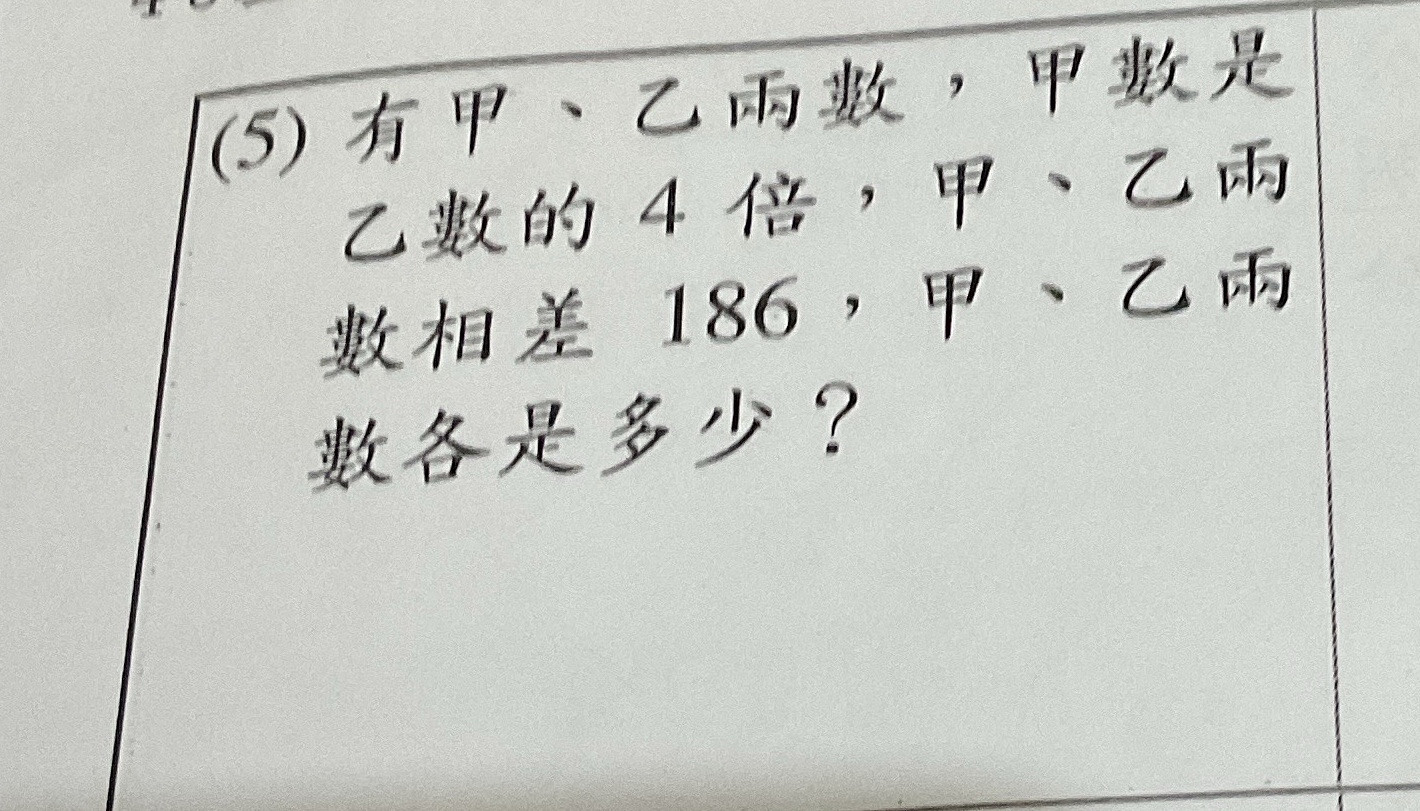 (5) 有甲、乙兩數，甲數是
乙數的 4 倍，甲、乙兩
數相差 186，甲、乙兩
數各是多少？